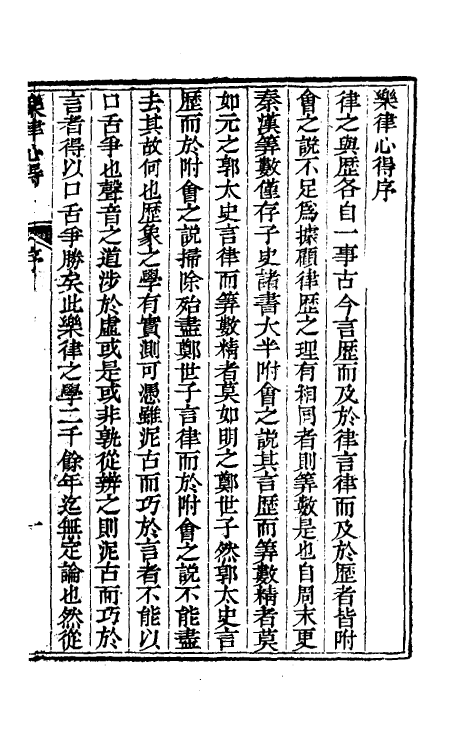 樂律心得序
律之與歴各自一事古今言歴而及於律言律而及於歴者皆附
會之說不足爲據顧律歴之理有相同者則筭數是也自周末更
秦漢筭數僅存子史諸書大半附會之說其言歴而筭數精者莫
如元之郭太史言律而筭數精者莫如明之鄭世子然郭太史言
歴而於附會之說掃除殆盡鄭世子言律而於附會之說不能盡
去其故何也歴象之學有實測可憑雖泥古而巧於言者不能以
口舌爭也聲音之道涉於虛或是或非孰從辨之則泥古而巧於
言者得以口舌爭勝矣此樂律之學二千餘年迄無定論也然從
樂律心得
序
一